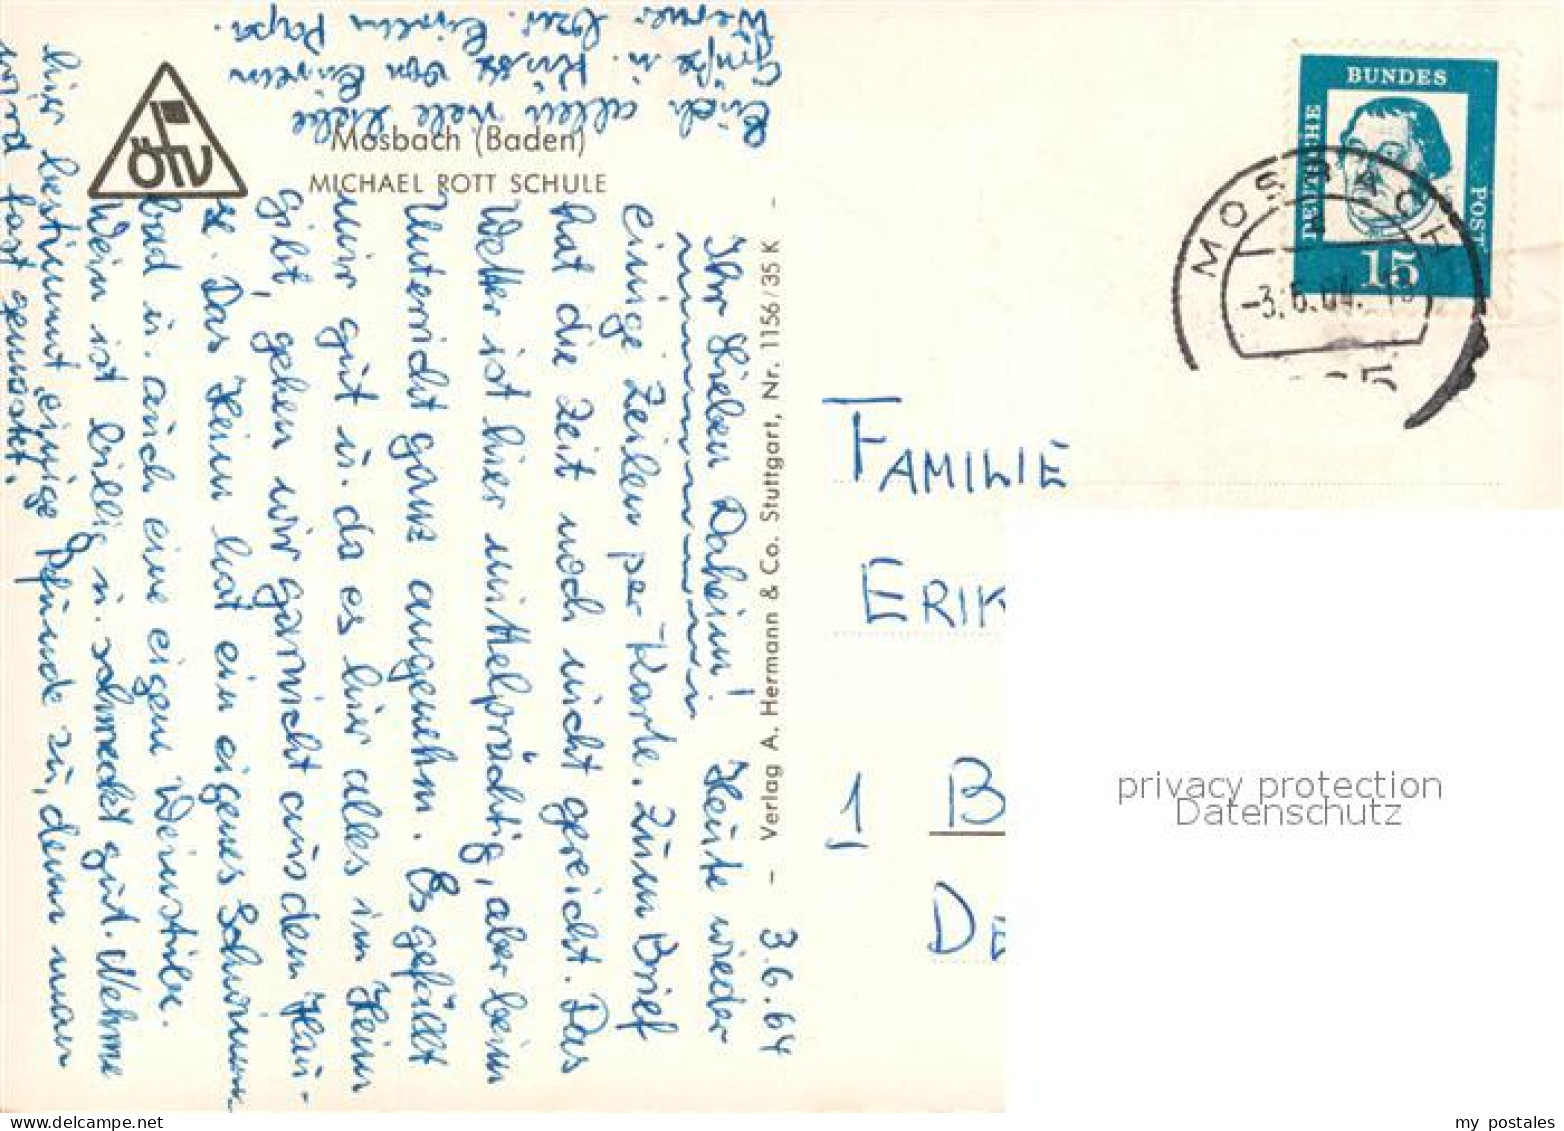 3.6.64
Ihr Lieben Daheim! Heute wieder
einige Zeilen per Karte. Zum Brief
hat die Zeit noch nicht gereicht. Das
Wetter ist hier mittelprächtig, aber beim
Unterricht ganz angenehm. Es gefällt
mir gut u. da es hier alles im Heim
gibt, gehen wir garnicht aus dem Hau-
se. Das Heim hat ein eigenes Schwimm-
bad u. auch eine eigene Weinstube.
Wein ist billig u. schmeckt gut. Nehme
hier bestimmt einige Pfunde zu, denn man
wird fast gemästet.
Euch allen viele liebe
Grüße u. Küsse von Eurem
Werner bzw. Eurem Papa.
ÖTV
Mosbach (Baden)
MICHAEL ROTT SCHULE
– Verlag A. Hermann & Co. Stuttgart, Nr. 1156/35 K –
DEUTSCHE
BUNDES
POST
15
MOSBACH
-3.6.64.
FAMILIE
ERIK
1 B
DE
privacy protection
Datenschutz
my postales
www.delcampe.net